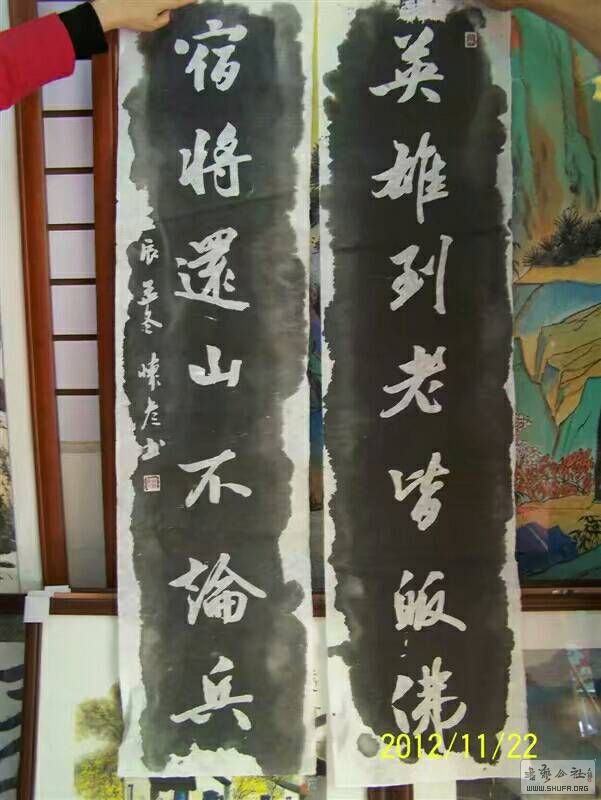 英雄到老皆皈佛
宿將還山不論兵
2012/11/22
书艺公社
WWW.SHUFA.ORG